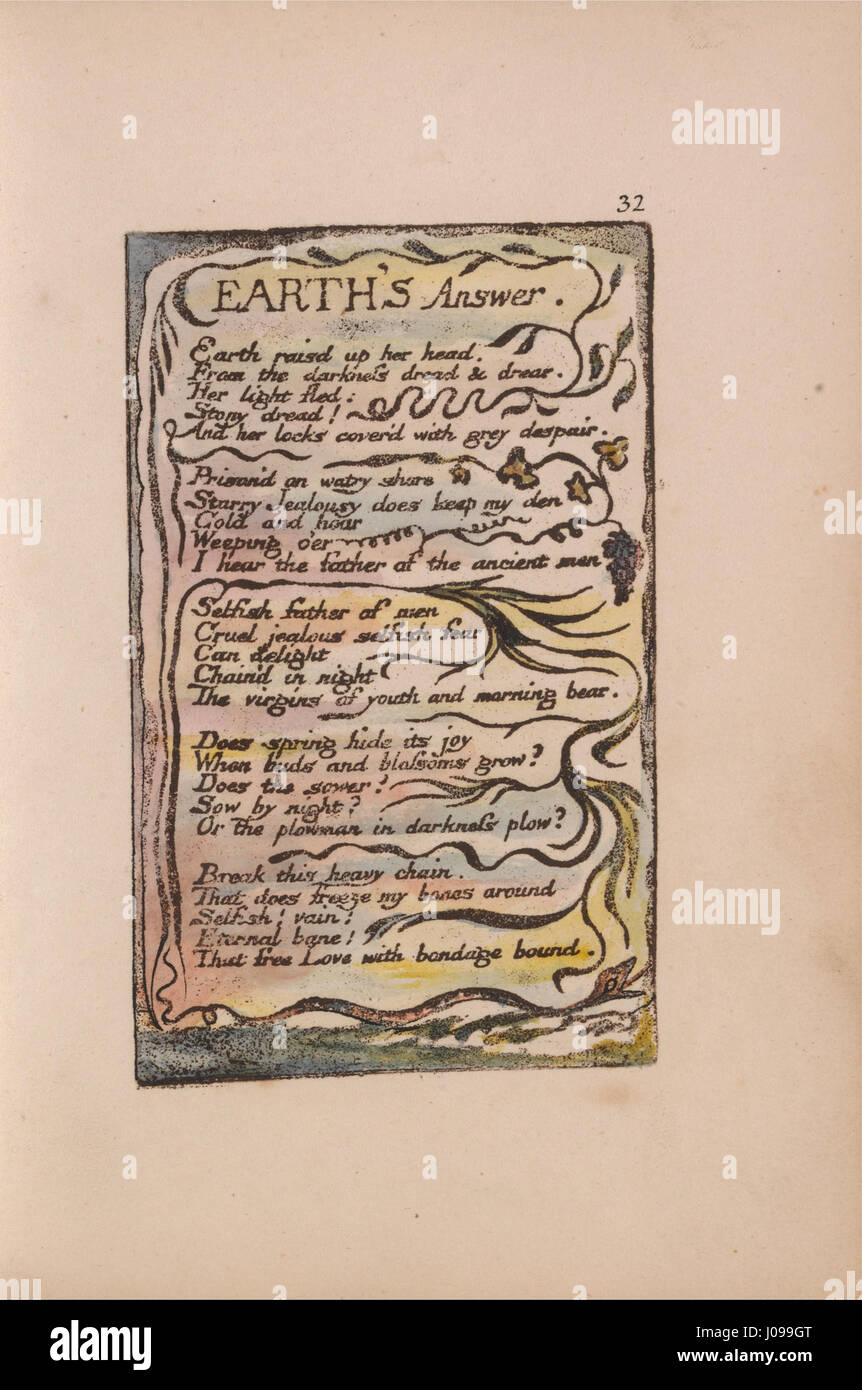 32
EARTH'S Answer.
Earth rais'd up her head.
From the darkneſs dread & drear.
Her light fled:
Stony dread!
And her locks cover'd with grey despair.
Prison'd on watry shore
Starry Jealousy does keep my den
Cold and hoar
Weeping o'er
I hear the father of the ancient men
Selfish father of men
Cruel jealous selfish fear
Can delight
Chain'd in night
The virgins of youth and morning bear.
Does spring hide its joy
When buds and bloſsoms grow?
Does the sower?
Sow by night?
Or the plowman in darkneſs plow?
Break this heavy chain.
That does freeze my bones around
Selfish! vain!
Eternal bane!
That free Love with bondage bound.
alamy
a
alamy stock photo
J099GT
www.alamy.com